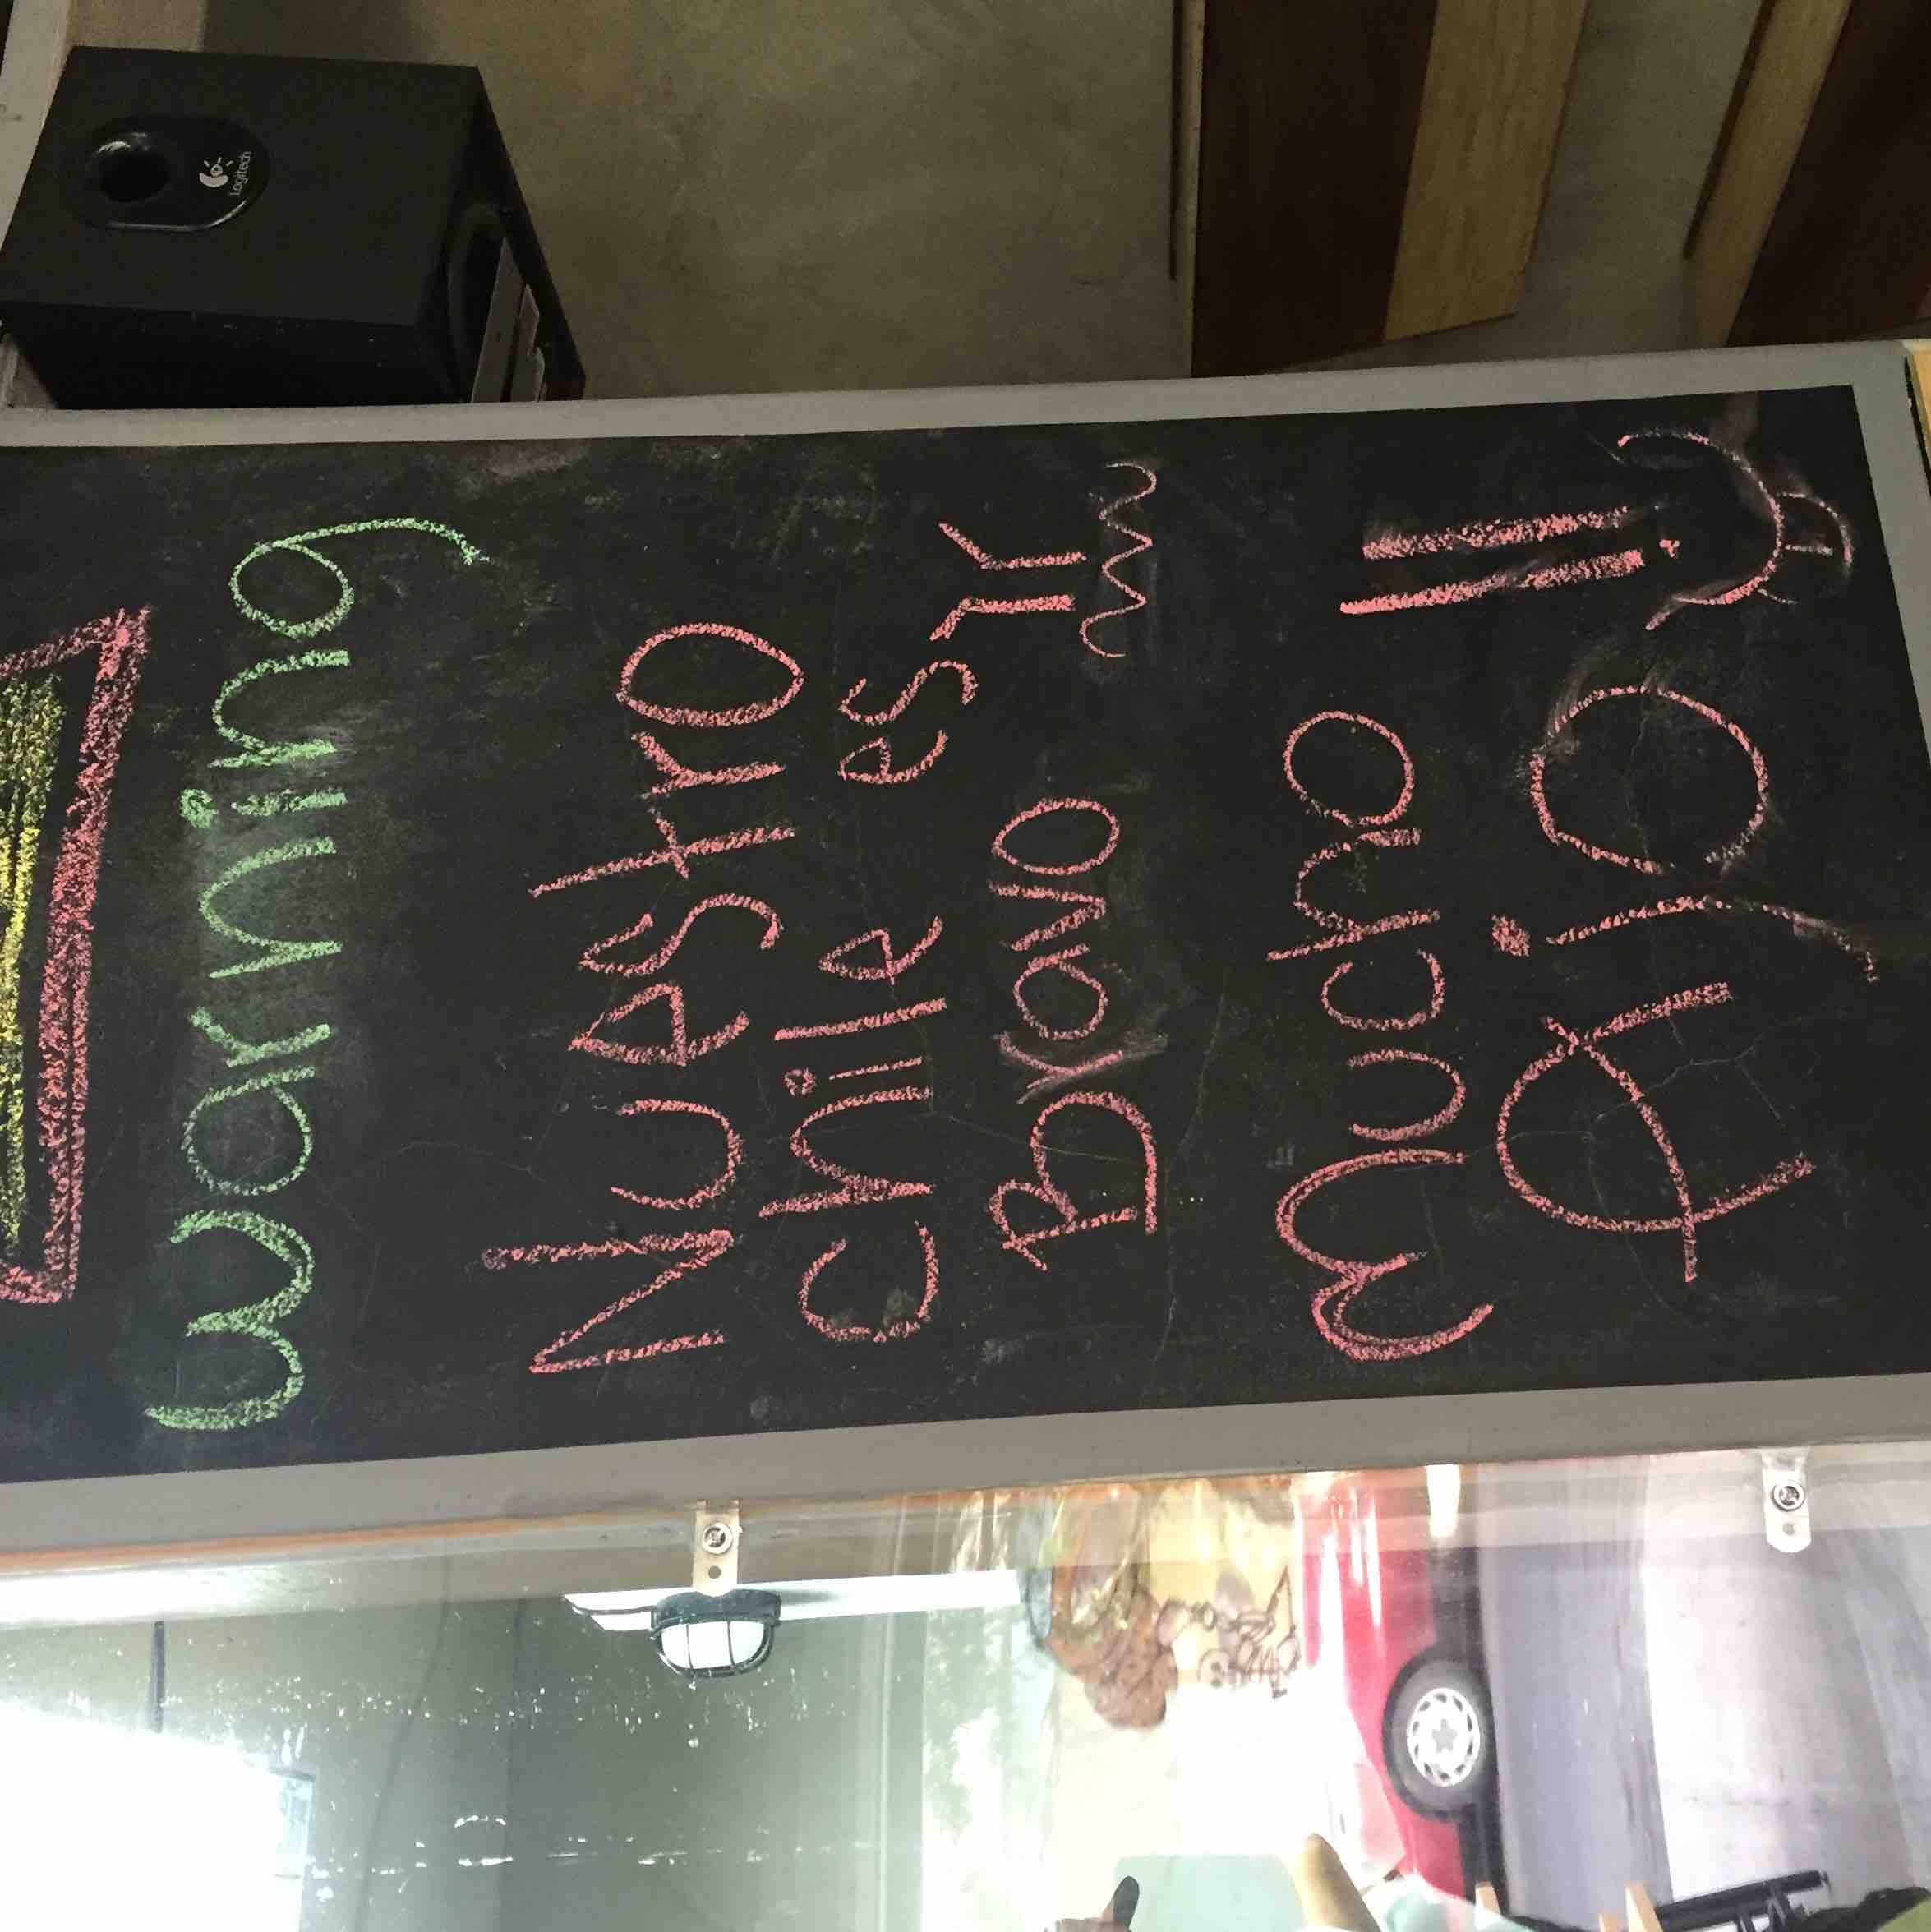 warning
Nuestro
chile es
Bravo
mucho
Ojo
Logitech